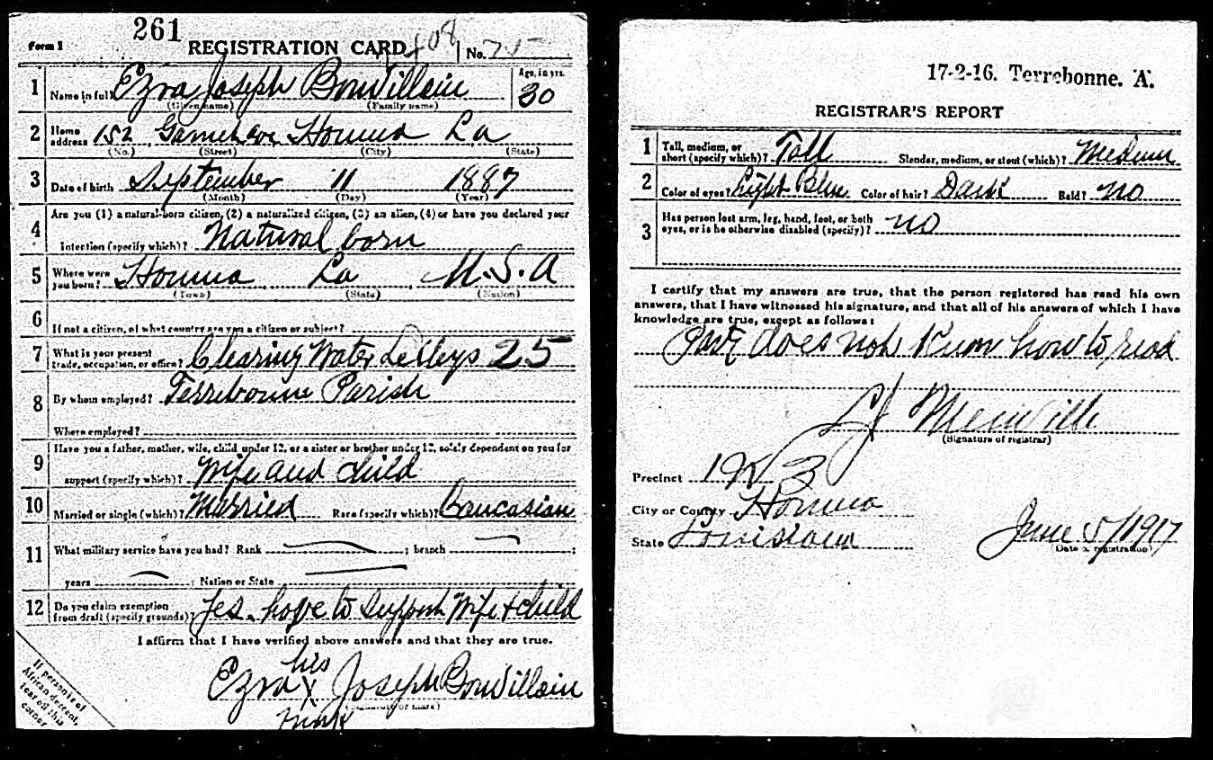 Form 1
261
REGISTRATION CARD
408
No. 75
1 Name in full Ezra Joseph Bouvillain
(Given name) (Family name)
Age, in yrs.
30
2 Home address 152 Houma La
(No.) (Street) (City) (State)
3 Date of birth September 11 1887
(Month) (Day) (Year)
4 Are you (1) a natural-born citizen, (2) a naturalized citizen, (3) an alien, (4) or have you declared your
intention (specify which)? Natural born
5 Where were you born? Houma La U.S.A
(Town) (State) (Nation)
6 If not a citizen, of what country are you a citizen or subject?
7 What is your present trade, occupation, or office? Clearing Water 25
8 By whom employed? Terrebonne Parish
Where employed?
9 Have you a father, mother, wife, child under 12, or a sister or brother under 12, solely dependent on you for
support (specify which)? Wife and child
10 Married or single (which)? Married Race (specify which)? Caucasian
11 What military service have you had? Rank ; branch ;
years ; Nation or State
12 Do you claim exemption from draft (specify grounds)? Yes. hope to support Wife & child
I affirm that I have verified above answers and that they are true.
his
Ezra X Joseph Bouvillain
(Signature or mark)
mark
If person is of African descent, tear off this corner
17-2-16. Terrebonne. A.
REGISTRAR'S REPORT
1 Tall, medium, or short (specify which)? Tall Slender, medium, or stout (which)? Medium
2 Color of eyes? Light Blue Color of hair? Dark Bald? no
3 Has person lost arm, leg, hand, foot, or both eyes, or is he otherwise disabled (specify)? no
I certify that my answers are true, that the person registered has read his own
answers, that I have witnessed his signature, and that all of his answers of which I have
knowledge are true, except as follows:
does not know how to read
(Signature of registrar)
Precinct 1 W 3
City or County Houma
State Louisiana
June 5/1917
(Date of registration)